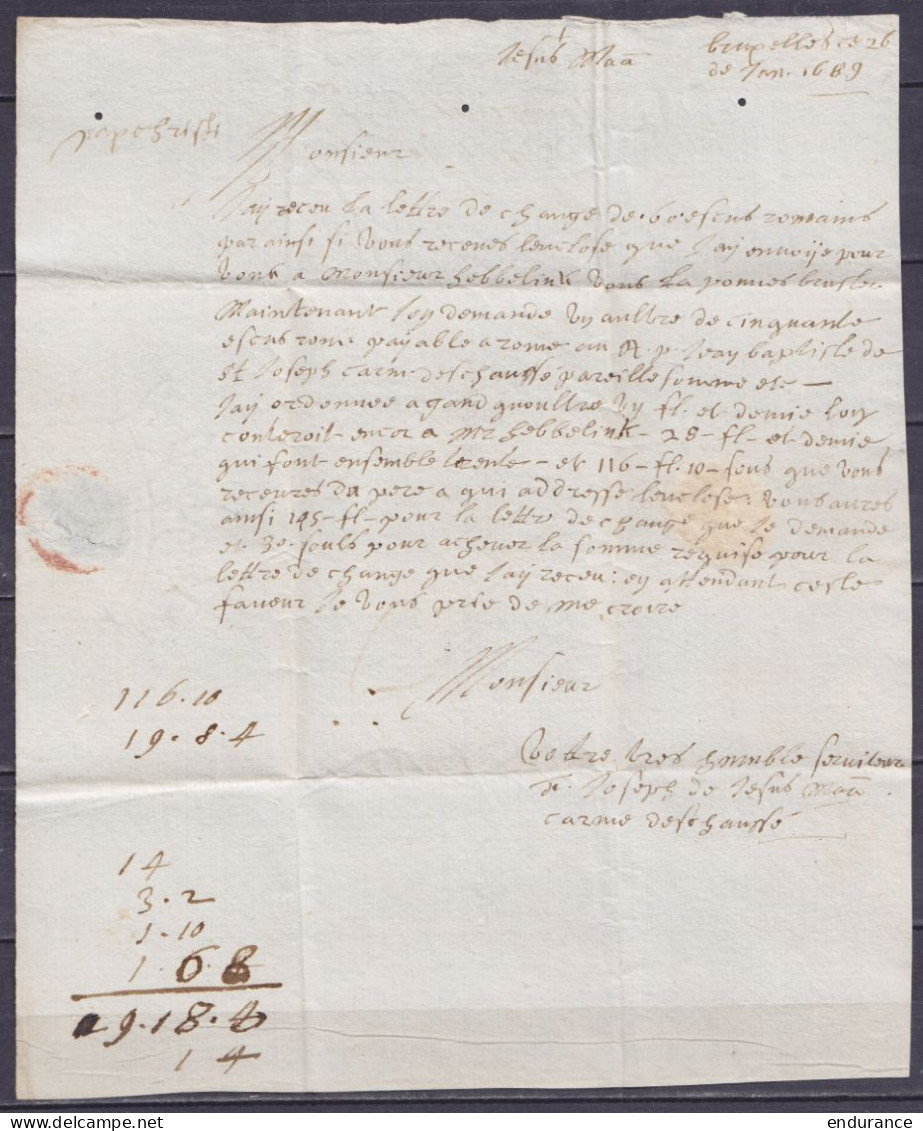 Jesus Maa
bruxelles ce 26
de Jan. 1689
pax christi
Monsieur
J'ay receu la lettre de change de 60 escus romains
par ainsi si vous receves l'enclose que J'ay envoÿe pour
vous a Monsieur hebbelink vous la pouves brusler.
Maintenant J'en demande un aultre de cinquante
escus rom. payable a rome au R. p. Jean baptiste de
St Joseph Carm. deschaussé pareille somme etc —
J'ay ordonnee a gand qu'oultre un fl. et demie l'on
conteroit encor a Mr hebbelink - 28 - fl - et demie
qui font ensemble trente - et 116 - fl. 10 - sous que vous
receures du pere a qui addresse l'enclose: vous aures
ainsi 145 - fl - pour la lettre de change que Je demande
et 30 souls pour achever la somme requise pour la
lettre de change que J'ay receu: en attendant ceste
faveur Je vous prie de me croire
Monsieur
116.10
19.8.4
Vostre tres humble serviteur
fr. Joseph de Jesus Maa
carme deschaussé
14
3.2
1.10
1.6.8
19.18.4
14
endurance